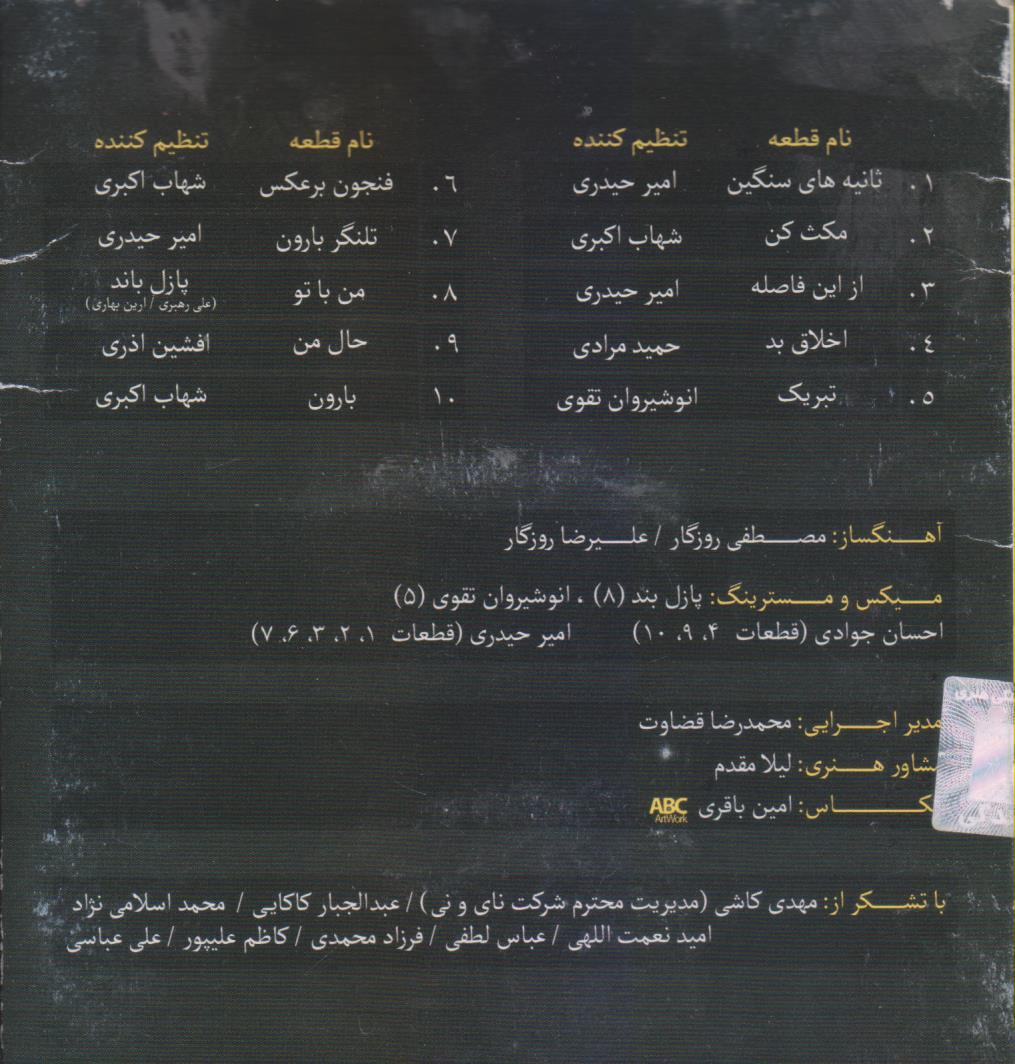 نام قطعه تنظیم کننده
۰۱ ثانیه های سنگین امیر حیدری
۰۲ مکث کن شهاب اکبری
۰۳ از این فاصله امیر حیدری
۰٤ اخلاق بد حمید مرادی
۰۵ تبریک انوشیروان تقوی
نام قطعه تنظیم کننده
۰٦ فنجون برعکس شهاب اکبری
۰۷ تلنگر بارون امیر حیدری
۰۸ من با تو پازل باند
(علی رهبری / ارین بهاری)
۰۹ حال من افشین اذری
۱۰ بارون شهاب اکبری
آهنگساز: مصطفی روزگار / علیرضا روزگار
میکس و مسترینگ: پازل بند (۸) ، انوشیروان تقوی (۵)
احسان جوادی (قطعات ۴، ۹، ۱۰) امیر حیدری (قطعات ۱، ۲، ۳، ۶، ۷)
مدیر اجرایی: محمدرضا قضاوت
مشاور هنری: لیلا مقدم
عکاس: امین باقری ABC
ArtWork
با تشکر از: مهدی کاشی (مدیریت محترم شرکت نای و نی) / عبدالجبار کاکایی / محمد اسلامی نژاد
امید نعمت اللهی / عباس لطفی / فرزاد محمدی / کاظم علیپور / علی عباسی